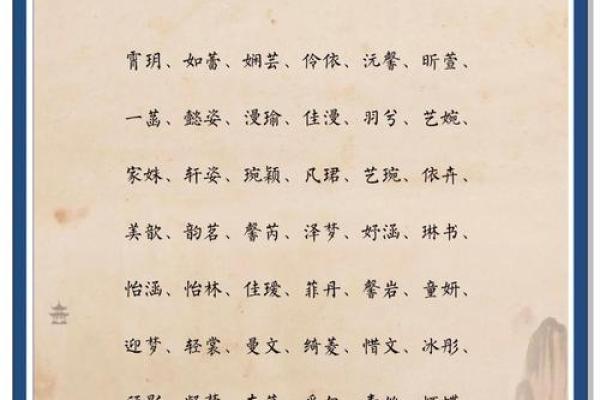 霄玥、如蕾、娴芸、伶依、沅馨、昕萱、
一菡、懿姿、漫瑜、佳漫、羽兮、艺婉、
家姝、轩姿、琬颖、凡珺、艺琬、依卉、
美歆、韵茗、馨芮、泽梦、妤涵、琳书、
怡涵、怡林、佳瑷、菲丹、馨岩、童妍、
迎梦、轻裳、曼文、绮菱、惜文、冰彤、